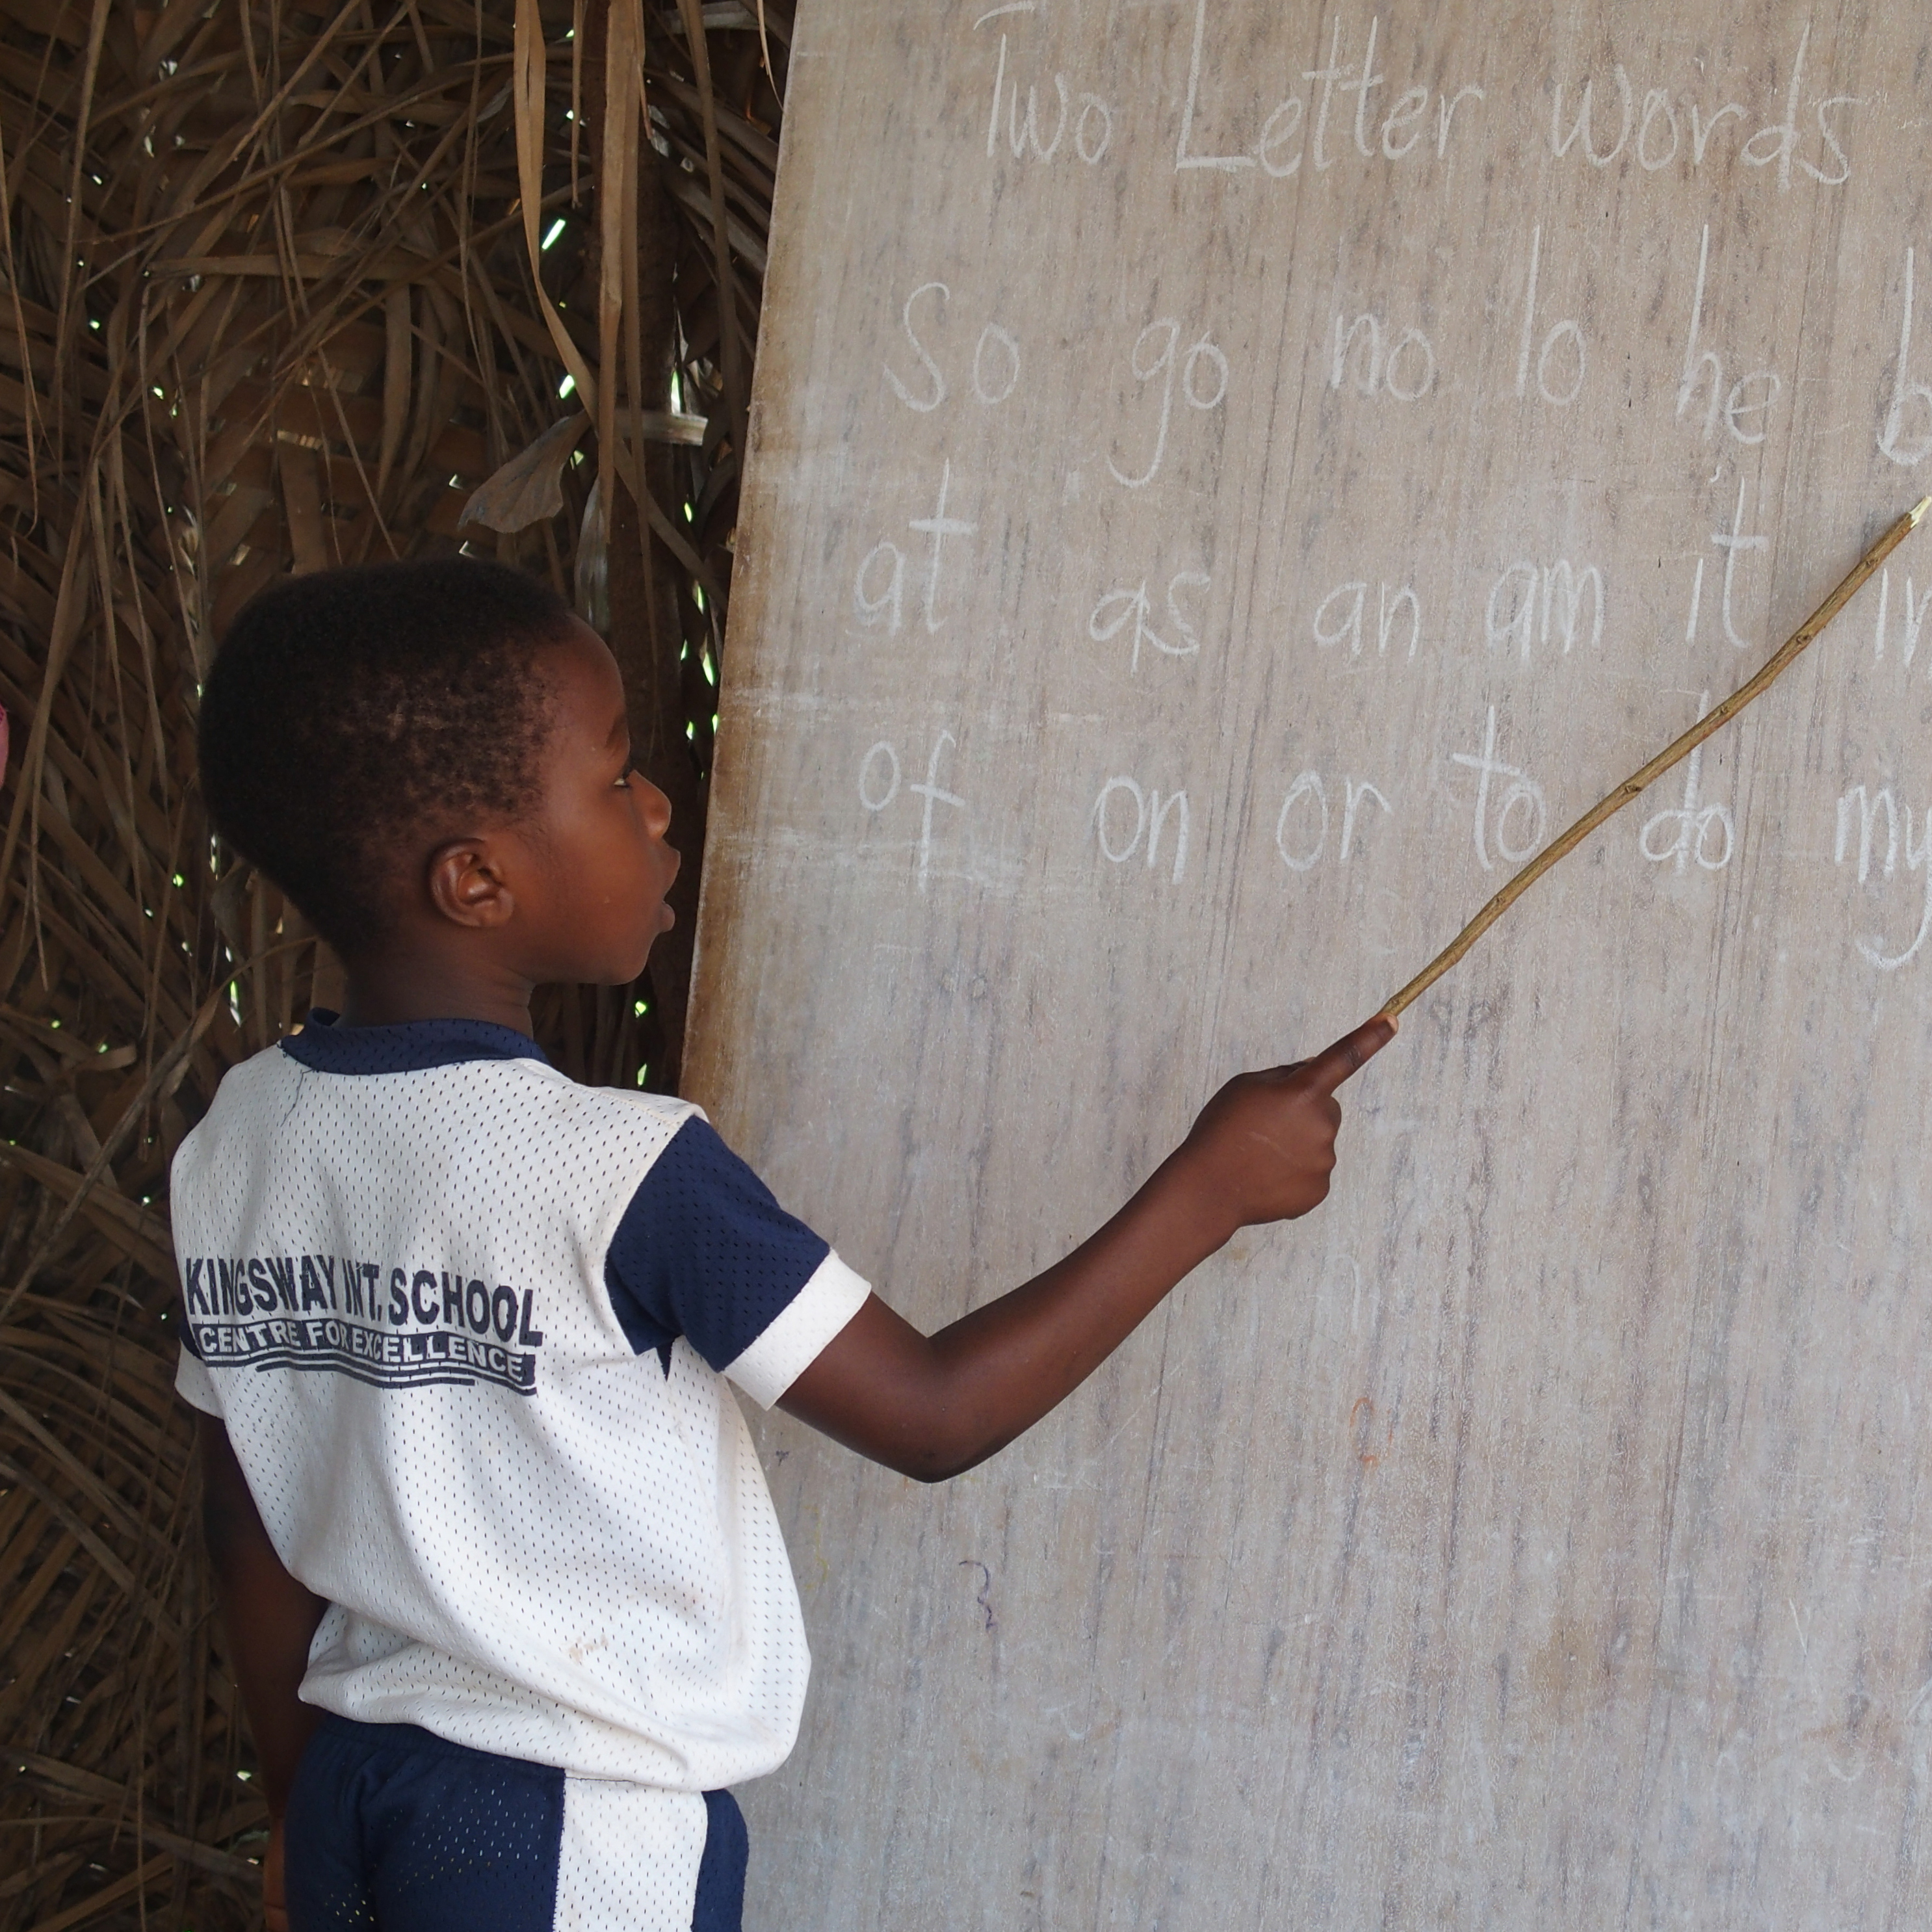 Two Letter words
So go no lo he
at as an am it
of on or to do my
KINGSWAY INT. SCHOOL
CENTRE FOR EXCELLENCE